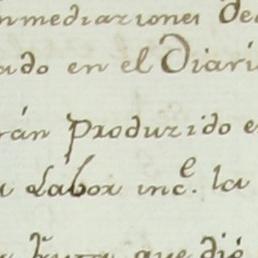 nmediaziones de
ado en el Diari
rán Produzido e
a Labor inc.e la
que dió